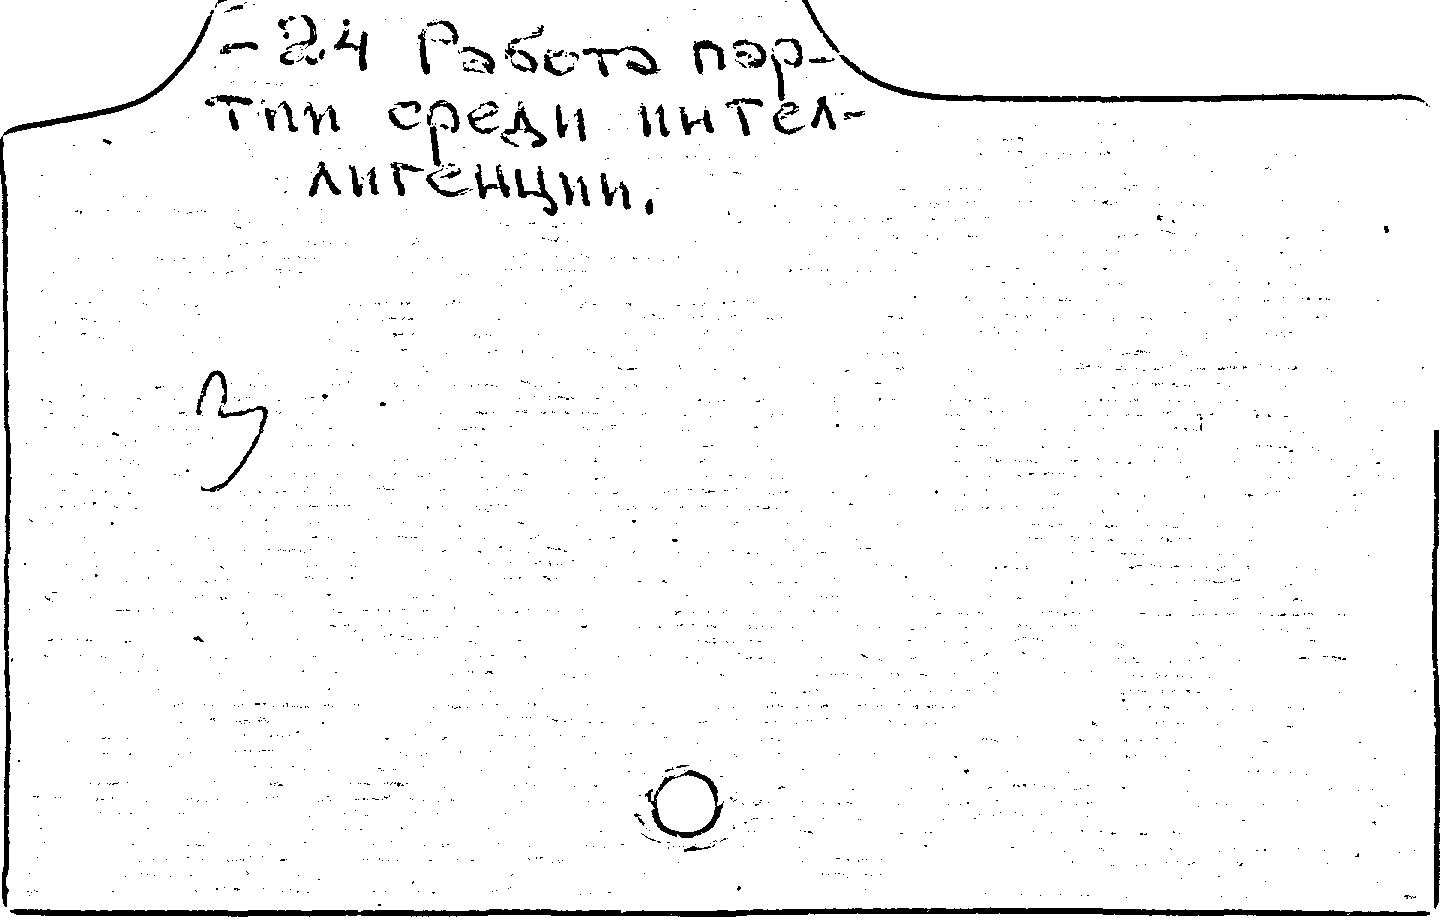 - 24 Работа пар-
тии среди интел-
лигенции.
3